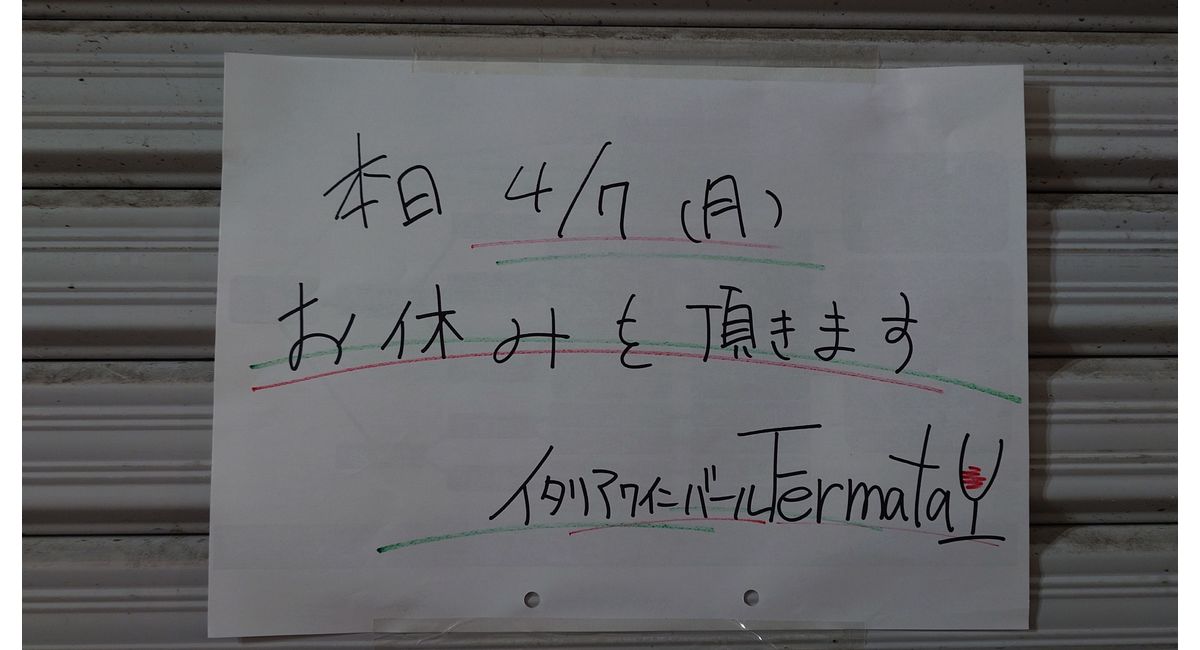 本日 4/7 (月)
お休みを頂きます
イタリアワインバールFermata